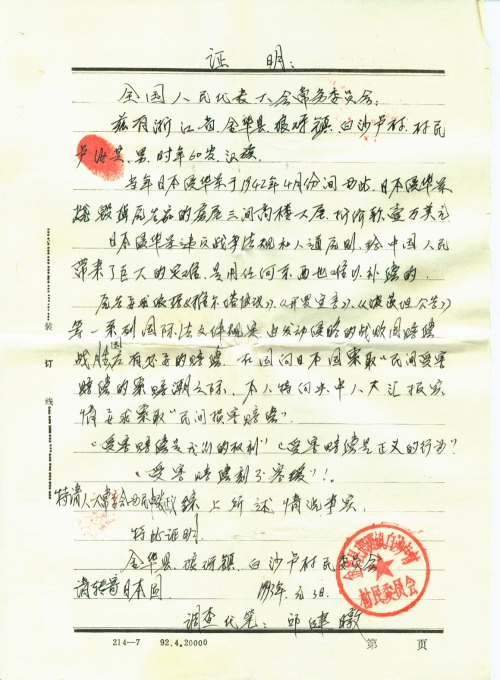 证 明：
全国人民代表大会常务委员会：
兹有浙江省，金华县，琅琊镇，白沙卢村，村民
卢海，男，时年60岁，汉族。
当年日本侵华军于1942年4月份间，日本侵华军
烧毁掉卢的房屋三间高楼大屋，折价款壹万美元
日本侵华军违反战争法规和人道原则，给中国人民
带来了巨大的灾难，是用任何东西也难以补偿的。
《雅尔塔协议》、《开罗宣言》、《波茨坦公告》
等一系列国际法文件规定由发动侵略的战败国赔偿
战胜国应有的赔偿。在国向日本国索取“民间受害
赔偿的索赔潮之际，本人特向中央人大汇报实
情要求索取“民间损害赔偿”。
“受害赔偿是我们的权利”“受害赔偿是正义的行为”！
“受害赔偿刻不容缓”！。
特请人大常委会 综上所述，情况事实
特此证明
金华县，琅琊镇，白沙卢村民委员会
请转着日本国 元.3日
调查代笔：邱建
村民委员会
装
订
线
214—7 92.4.20000 第 页